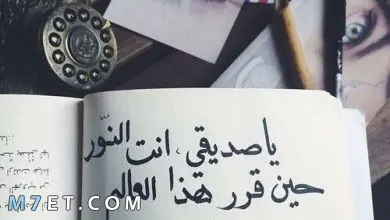 يا صديقي، انت النّور
حين قرر هذا العالم
M7ET.COM